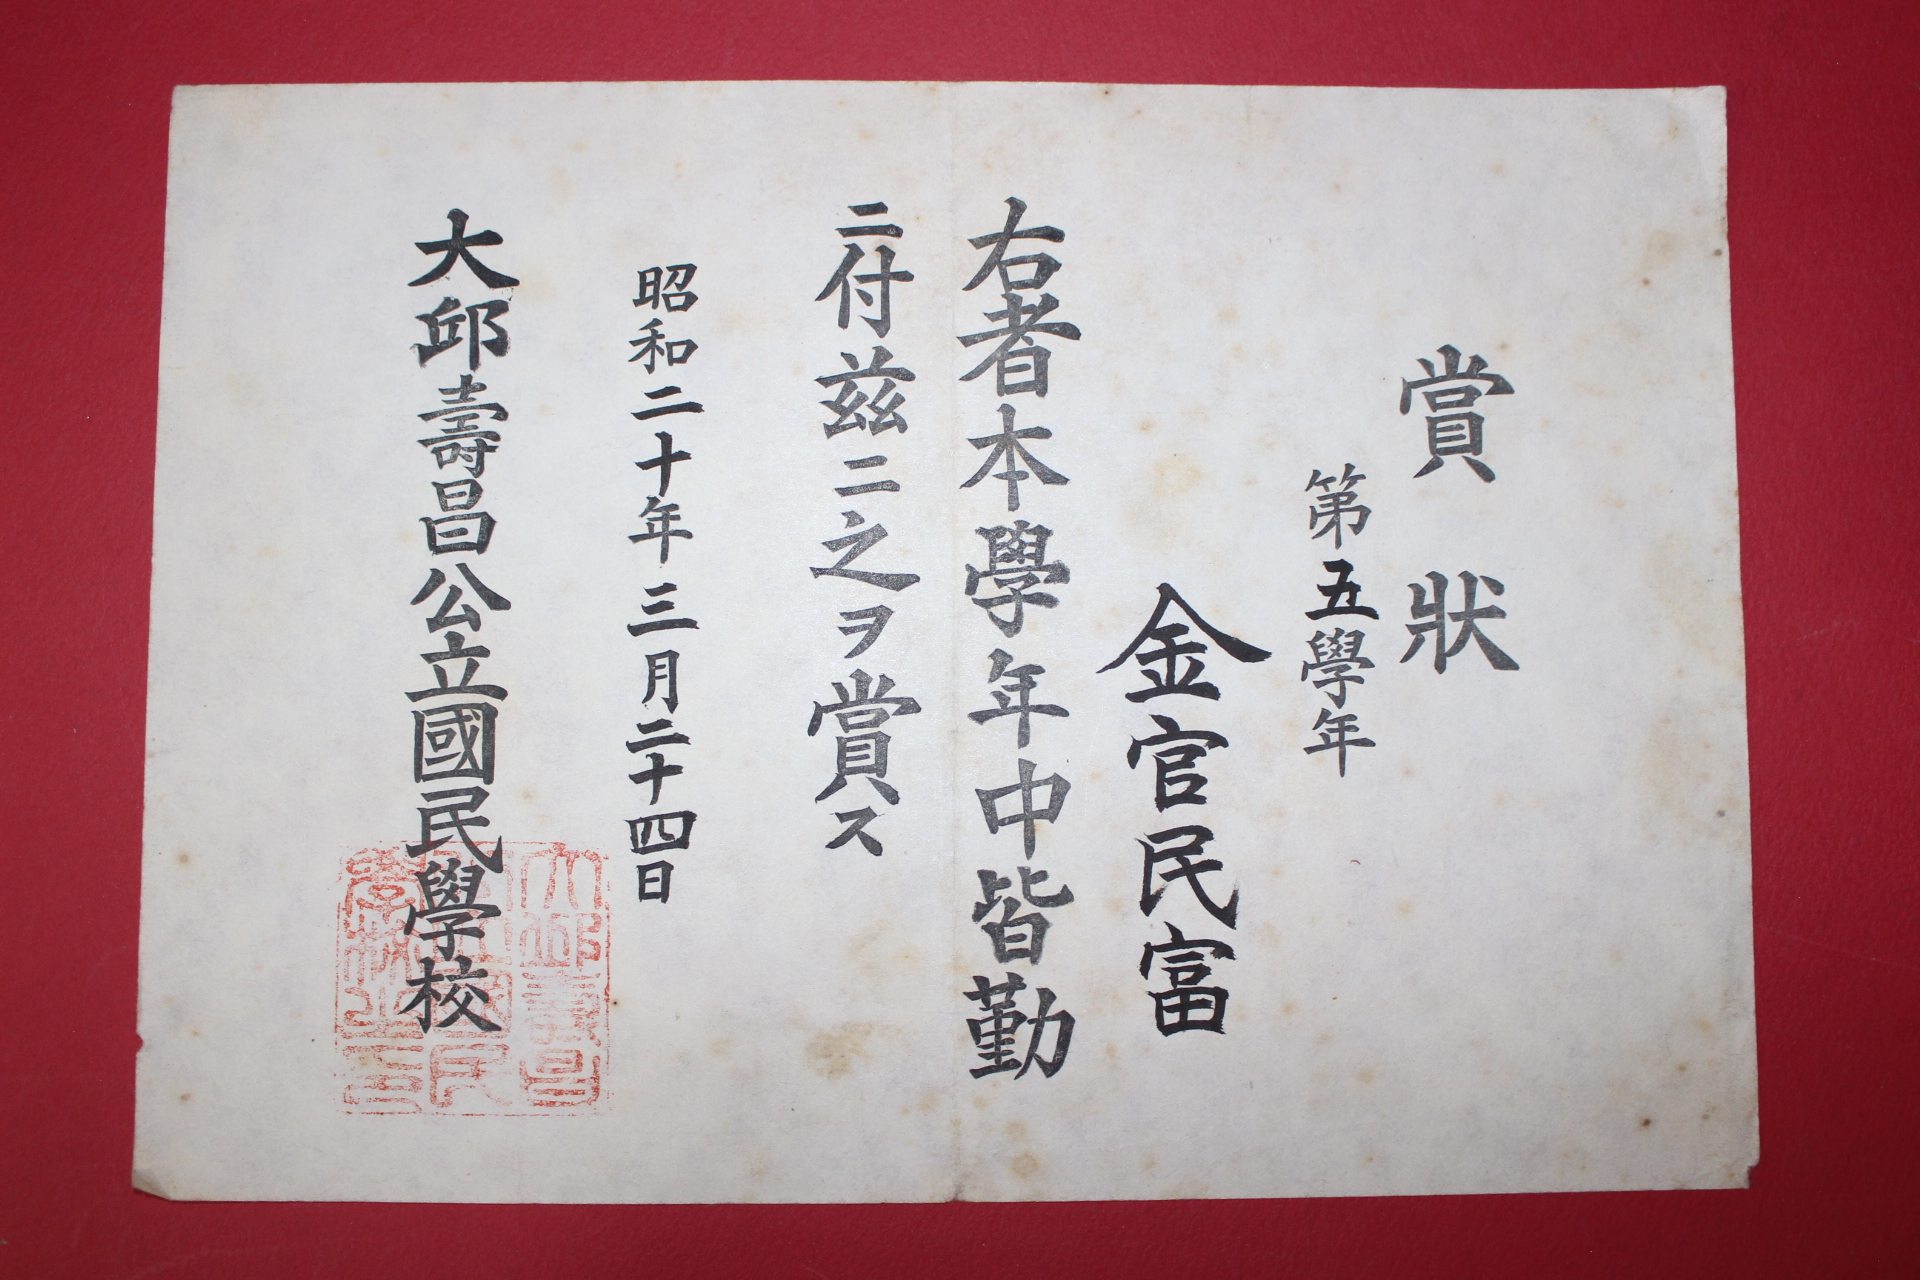 賞狀
第五學年
金官民富
右者本學年中皆勤
ニ付茲ニ之ヲ賞ス
昭和二十年三月二十四日
大邱壽昌公立國民學校
大邱壽昌